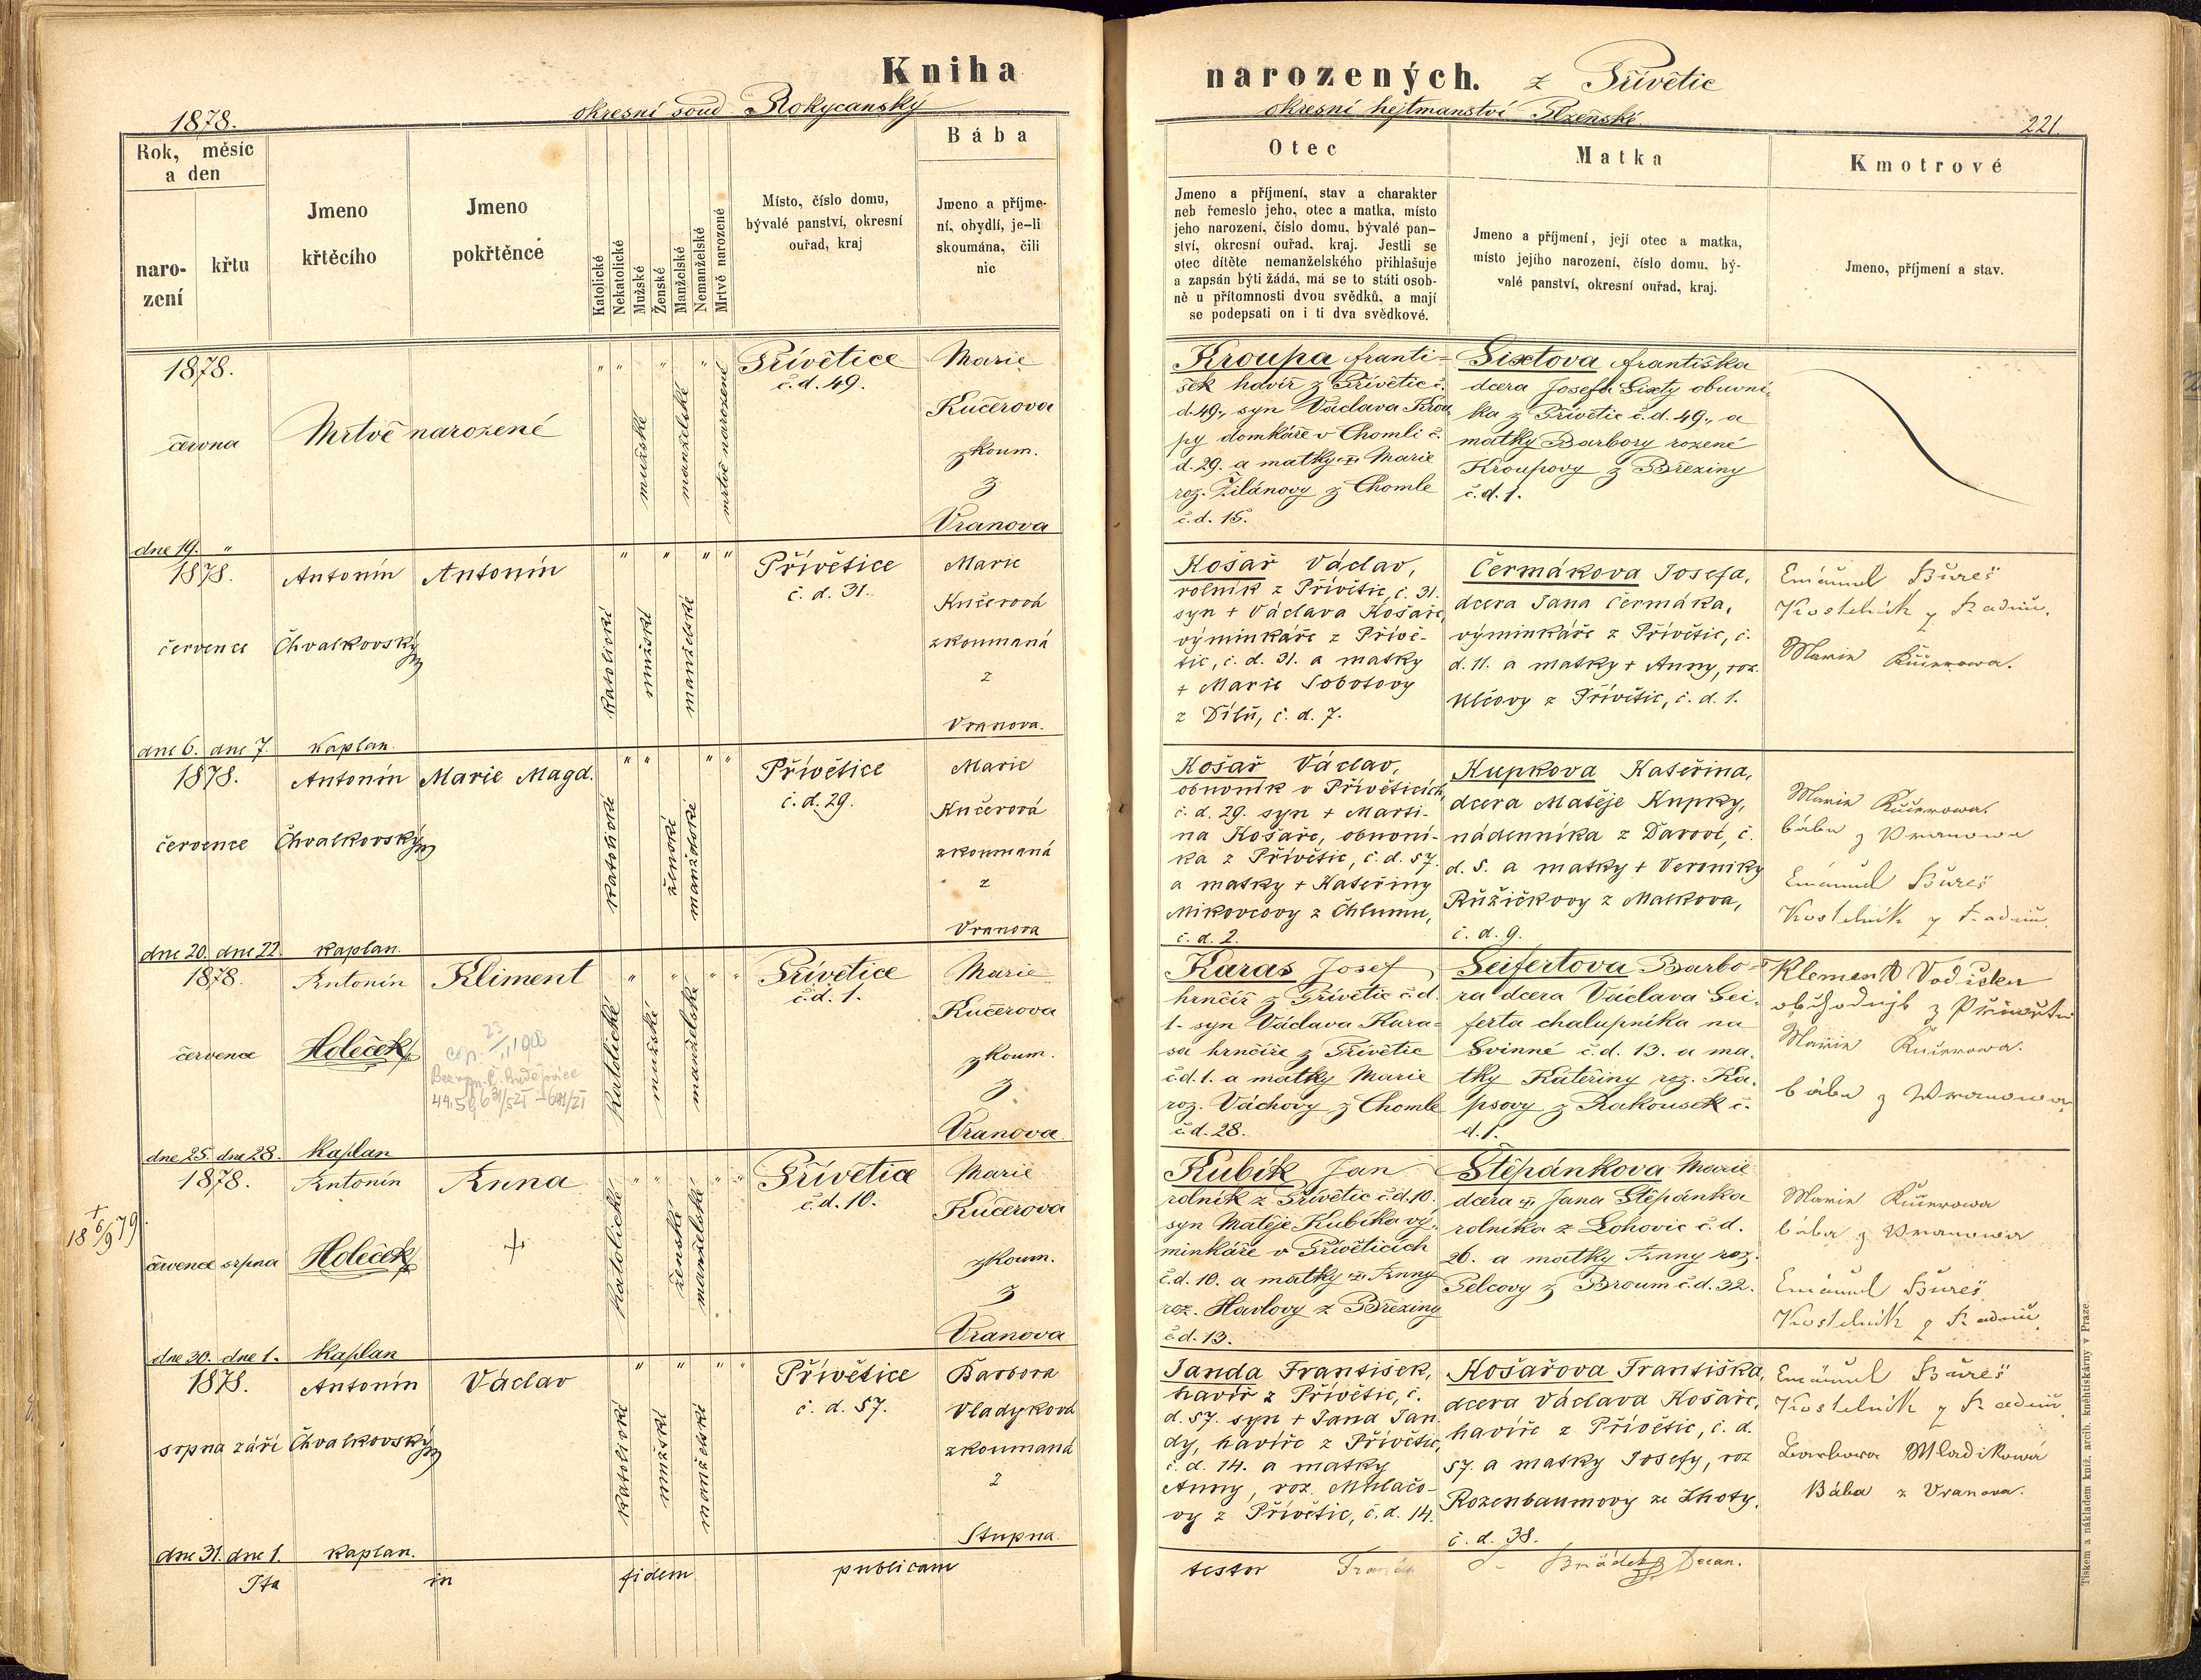 Kniha
narozených. z Přívětic
1878.
okresní soud Rokycanský
okresní hejtmanství Plzeňské.
221.
Rok, měsíc
a den
naro-
zení
křtu
Jmeno
křtěcího
Jmeno
pokřtěnce
Katolické
Nekatolické
Mužské
Ženské
Manželské
Nemanželské
Mrtvě narozené
Místo, číslo domu,
bývalé panství, okresní
ouřad, kraj
Bába
Jmeno a příjme-
ní, obydlí, je-li
skoumána, čili
nic
Otec
Jmeno a příjmení, stav a charakter
neb řemeslo jeho, otec a matka, místo
jeho narození, číslo domu, bývalé pan-
ství, okresní ouřad, kraj. Jestli se
otec dítěte nemanželského přihlašuje
a zapsán býti žádá, má se to státi osob-
ně u přítomnosti dvou svědků, a mají
se podepsati on i ti dva svědkové.
Matka
Jmeno a příjmení, její otec a matka,
místo jejího narození, číslo domu, bý-
valé panství, okresní ouřad, kraj.
Kmotrové
Jmeno, příjmení a stav.
1878.
června
dne 19. "
Mrtvě narozené
" "
mužské
"
manželské
"
mrtvě narozené
Přívětice
č.d. 49.
Marie
Kučerova
zkoum.
z
Vranova
Kroupa Franti=
šek havíř z Přívětic č.
d. 49., syn Václava Krou
py domkáře v Chomli č.
d. 29. a matky + Marie
roz. Žilánovy z Chomle
č.d. 15.
Sixtova Františka
dcera Josefa Sixty obuvní,
ka z Přívětic č.d. 49., a
matky Barbory rozené
Kroupovy z Březiny
č.d. 1.
1878.
července
dne 6. dne 7.
Antonín
Chvalkovský
kaplan.
Antonín
katolické
"
mužské
"
manželské
" "
Přívětice
č. d. 31.
Marie
Kučerová
zkoumaná
z
Vranova.
Košař Václav,
rolník z Přívětic, č. 31.
syn + Václava Košaře,
výminkáře z Přívě-
tic, č. d. 31. a matky
+ Marie Sobotovy
z Dílů, č. d. 7.
Čermákova Josefa,
dcera Jana Čermáka,
výminkáře z Přívětic, č.
d. 11. a matky + Anny, roz.
Ulčovy z Přívětic, č. d. 1.
Emanuel Bureš
Kostelník z Radnic.
Marie Kučerowa.
1878.
července
dne 20. dne 22.
Antonín
Chvalkovský
kaplan.
Marie Magd.
katolické
" "
ženské
manželské
" "
Přívětice
č. d. 29.
Marie
Kučerová
zkoumaná
z
Vranova
Košař Václav,
obuvník v Přívěticích,
č. d. 29. syn + Marti-
na Košaře, obuvní-
ka z Přívětic, č. d. 57.
a matky + Kateřiny
Mikovcovy z Chlumu,
č. d. 2.
Kupkova Kateřina,
dcera Matěje Kupky,
nádenníka z Darové, č.
d. 5. a matky + Veroniky
Růžičkovy z Malkova,
č. d. 9.
Marie Kučerowa.
bába z Wranowa
Emanuel Bureš
Kostelník z Radnic
1878.
července
dne 25. dne 28.
Antonín
Holeček
kaplan
Kliment
cop.
katolické
"
mužské
"
manželské
" "
Přívětice
č.d. 1.
Marie
Kučerova
zkoum.
z
Vranova
Karas Josef
hrnčíř z Přívětic č.d.
1. syn Václava Kara=
sa hrnčíře z Přívětic
č.d. 1. a matky Marie
roz. Váchovy z Chomle
č.d. 28.
Seifertova Barbo=
ra dcera Václava Sei=
ferta chalupníka na
Svinné č.d. 13. a ma=
tky Kateřiny roz. Ka=
psovy z Rakousek č.
d. 1.
Klement Vodička
Marie Kučerowa.
bába z Wranowa
1878.
července srpna
dne 30. dne 1.
+
18 6/9 79
Antonín
Holeček
kaplan
Anna
+
katolické
" "
ženské
manželské
" "
Přívětice
č.d. 10.
Marie
Kučerova
zkoum.
z
Vranova
Kubík Jan
rolník z Přívětic č.d. 10.
syn Matěje Kubíka vý=
minkáře v Přívěticích
č.d. 10. a matky + Anny
roz. Havlovy z Březiny
č.d. 13.
Štěpánkova Marie
dcera + Jana Štěpánka
rolníka z Lohovic č.d.
26. a matky Anny roz.
Pelcovy z Broum č.d. 32.
Marie Kučerowa
bába z Wranowa
Emanuel Bureš
Kostelník z Radnic
1878.
srpna září
dne 31. dne 1.
Antonín
Chvalkovský
kaplan.
Václav
katolické
"
mužské
"
manželské
" "
Přívětice
č. d. 57.
Barbora
Vladyková
zkoumaná
z
Stupna
Janda František,
havíř z Přívětic, č.
d. 57. syn + Jana Jan
dy, havíře z Přívětic,
č. d. 14. a matky
Anny, roz. Mulačo-
vy z Přívětic, č. d. 14.
Košařova Františka,
dcera Václava Košaře,
havíře z Přívětic, č. d.
57. a matky Josefy, roz
Rozenbaumovy ze Lhoty,
č. d. 38.
Emanuel Bureš
Kostelník z Radnic
Barbora Wladikowá
Bába z Vranova.
Ita in fidem publicam
testor Brádek Decan.
Tiskem a nákladem kníž. arcib. knihtiskárny v Praze.